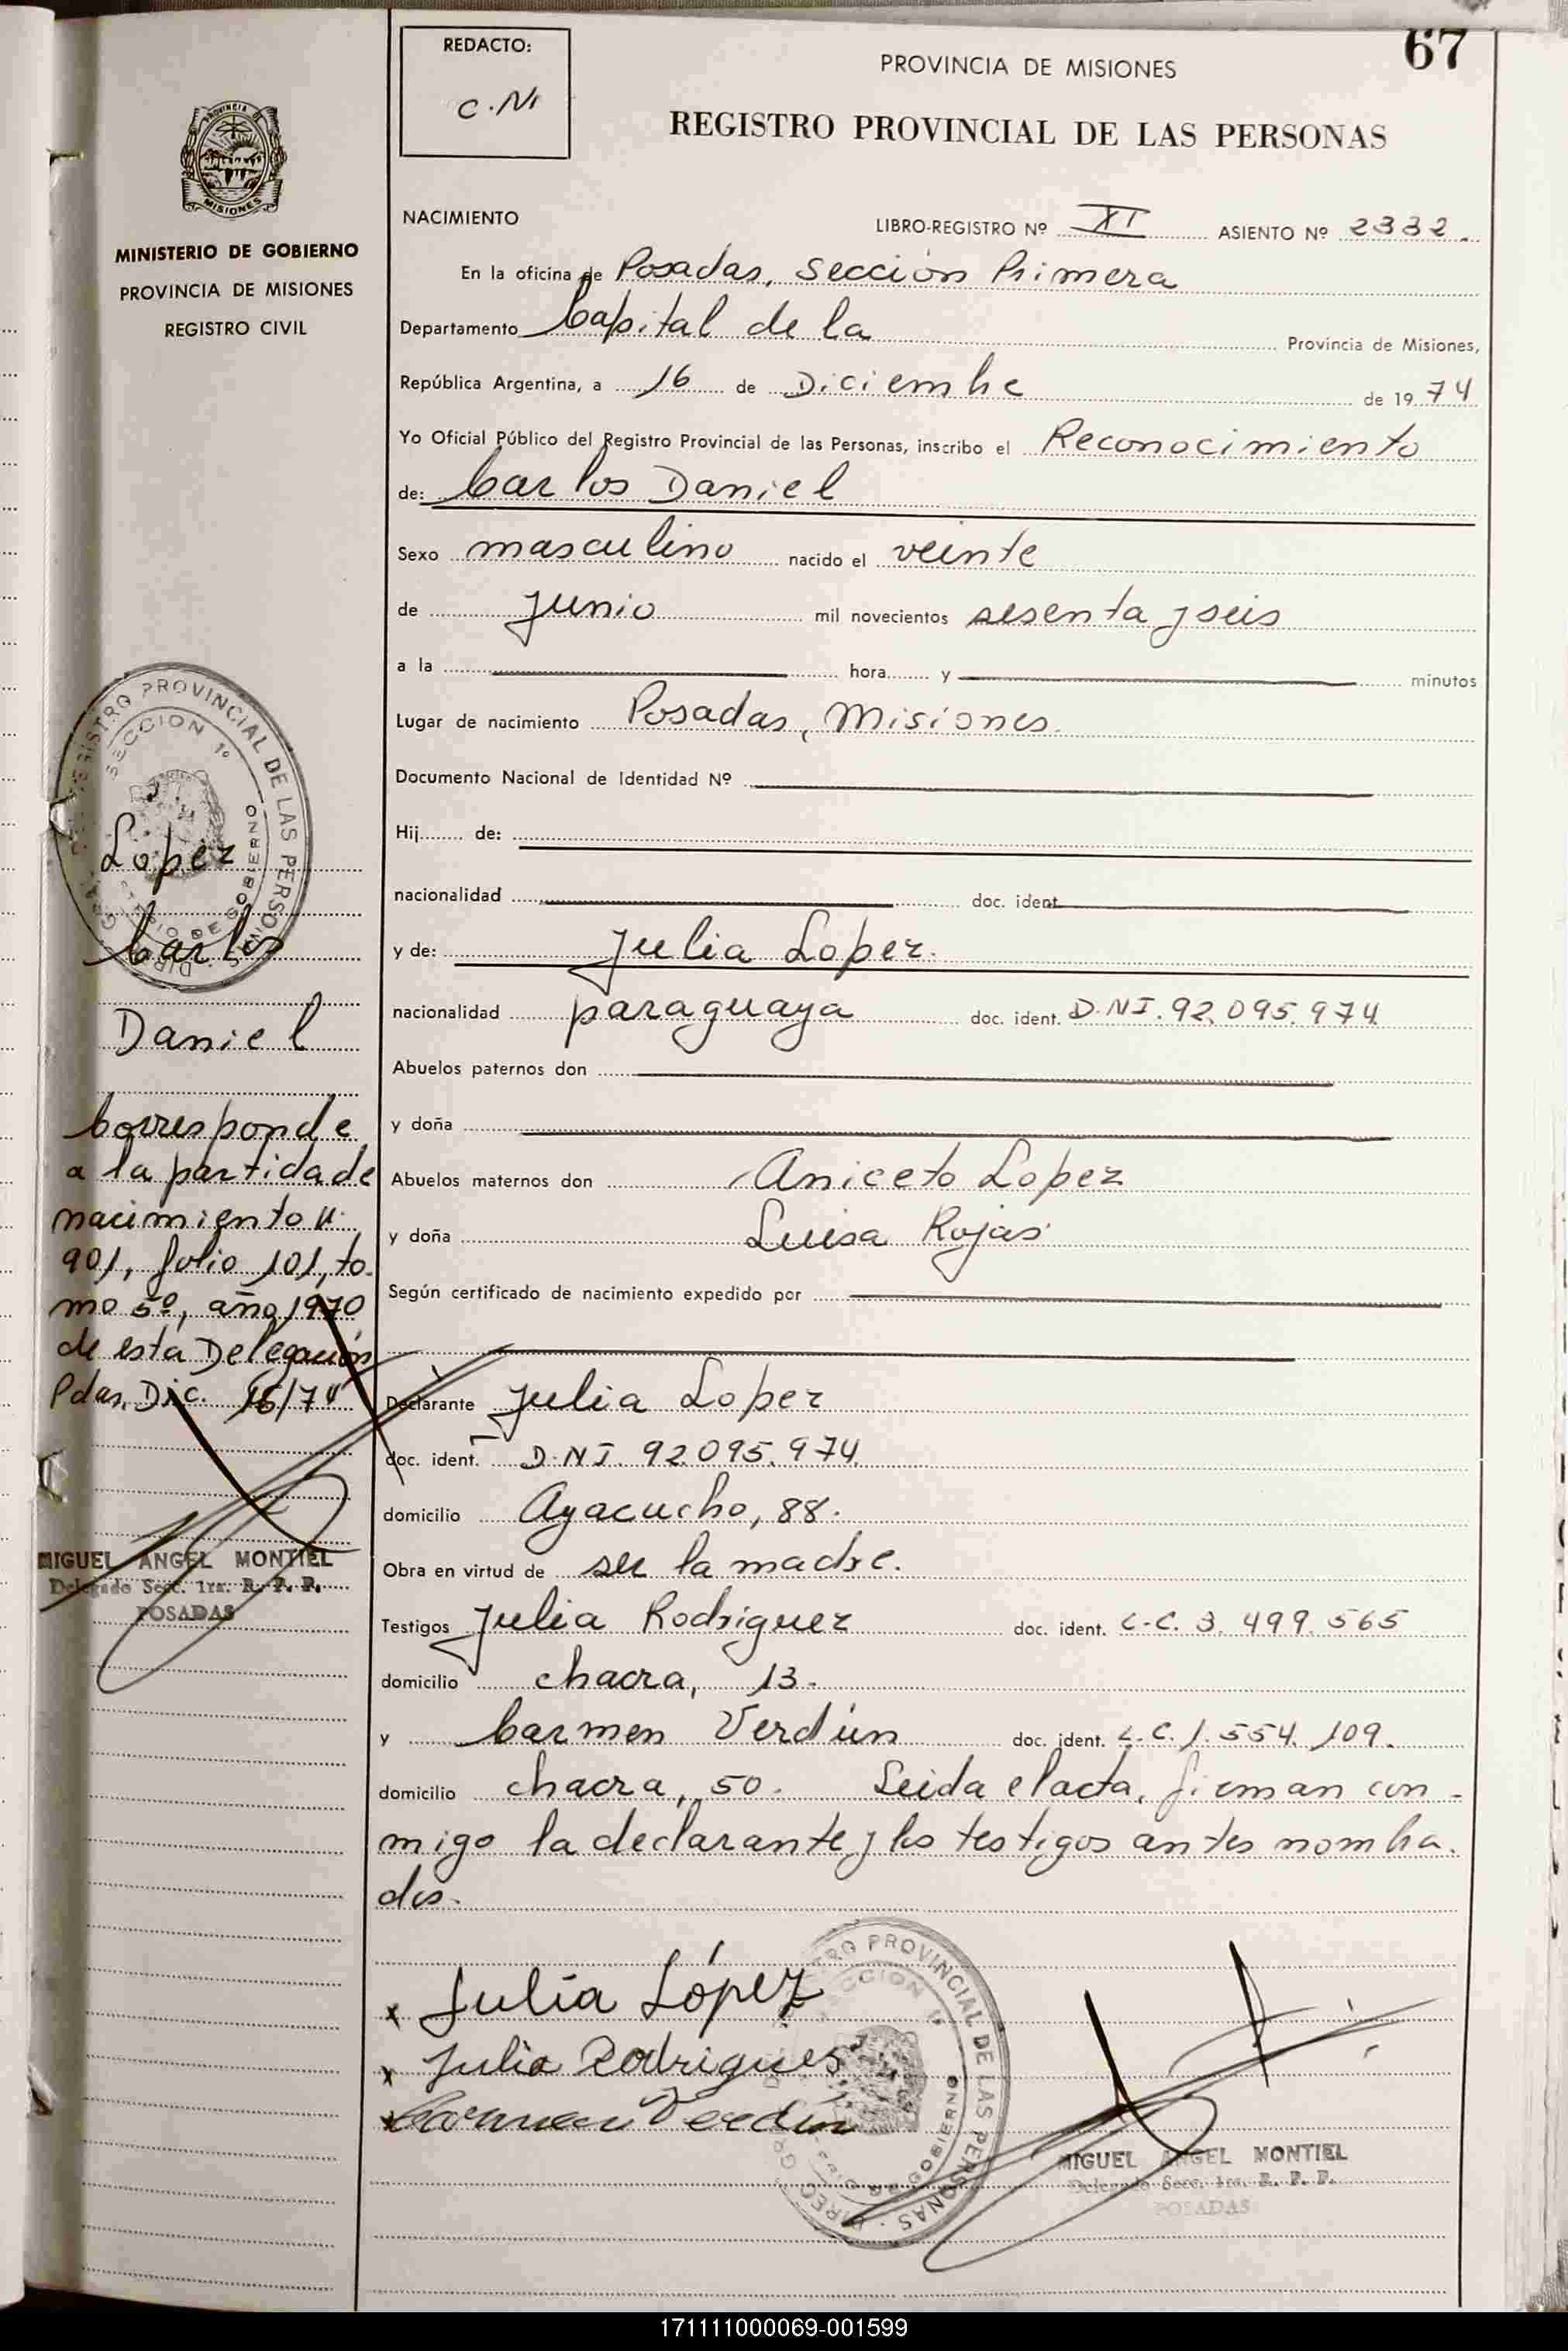 67
REDACTO:
C.N.
PROVINCIA DE MISIONES
REGISTRO PROVINCIAL DE LAS PERSONAS
MISIONES
MINISTERIO DE GOBIERNO
PROVINCIA DE MISIONES
REGISTRO CIVIL
NACIMIENTO LIBRO-REGISTRO Nº XI ASIENTO Nº 2332.
En la oficina de Posadas, Sección Primera
Departamento Capital de la Provincia de Misiones,
República Argentina, a 16 de Diciembre de 1974
Yo Oficial Público del Registro Provincial de las Personas, inscribo el Reconocimiento
de: Carlos Daniel
Sexo masculino nacido el veinte
de Junio mil novecientos sesenta y seis
a la hora y minutos
Lugar de nacimiento Posadas, Misiones.
Documento Nacional de Identidad Nº
Hij de:
nacionalidad doc. ident
y de: Julia Lopez.
nacionalidad paraguaya doc. ident. D.N.I. 92.095.974
Abuelos paternos don
y doña
Abuelos maternos don Aniceto Lopez
y doña Luisa Rojas
Según certificado de nacimiento expedido por
Declarante Julia Lopez
doc. ident. D.N.I. 92.095.974
domicilio Ayacucho, 88.
Obra en virtud de ser la madre.
Testigos Julia Rodriguez doc. ident. L.C. 3.499.565
domicilio chacra, 13.
y Carmen Verdún doc. ident. L.C. 1.554.109.
domicilio chacra, 50. Leida el acta, firman con-
migo la declarante y los testigos antes nombra-
dos.
x Julia López
x Julia Rodrigues
x Carmen Verdin
REGISTRO PROVINCIAL DE LAS PERSONAS
SECCION 1º
MIGUEL ANGEL MONTIEL
Delegado Secc. 1ra. R. P. P.
POSADAS
REGISTRO PROVINCIAL DE LAS PERSONAS
SECCION 1º
Lopez
Carlos
Daniel
Corresponde
a la partida de
nacimiento n.
901, folio 101, to-
mo 5º, año 1970
de esta Delegación
Pdas. Dic. 16/74
MIGUEL ANGEL MONTIEL
Delegado Secc. 1ra. R. P. P.
POSADAS
171111000069-001599